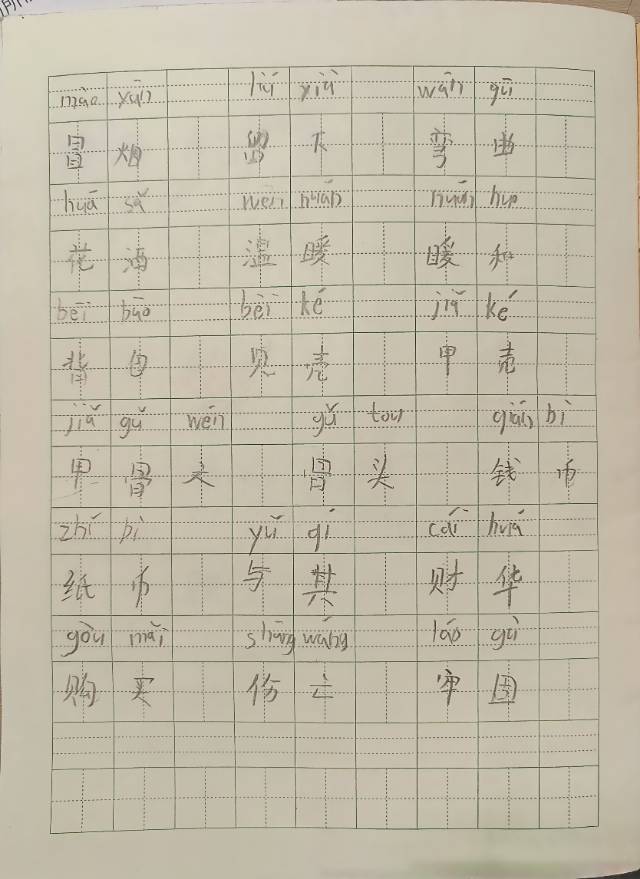 mào yān liú xià wān qū
冒 烟 留 下 弯 曲
huā sǎ wēn nuǎn nuǎn huo
花 洒 温 暖 暖 和
bēi bāo bèi ké jiǎ ké
背 包 贝 壳 甲 壳
jiǎ gǔ wén gǔ tou qián bì
甲 骨 文 骨 头 钱 币
zhǐ bì yǔ qí cái huá
纸 币 与 其 财 华
gòu mǎi shāng wáng láo gù
购 买 伤 亡 牢 固